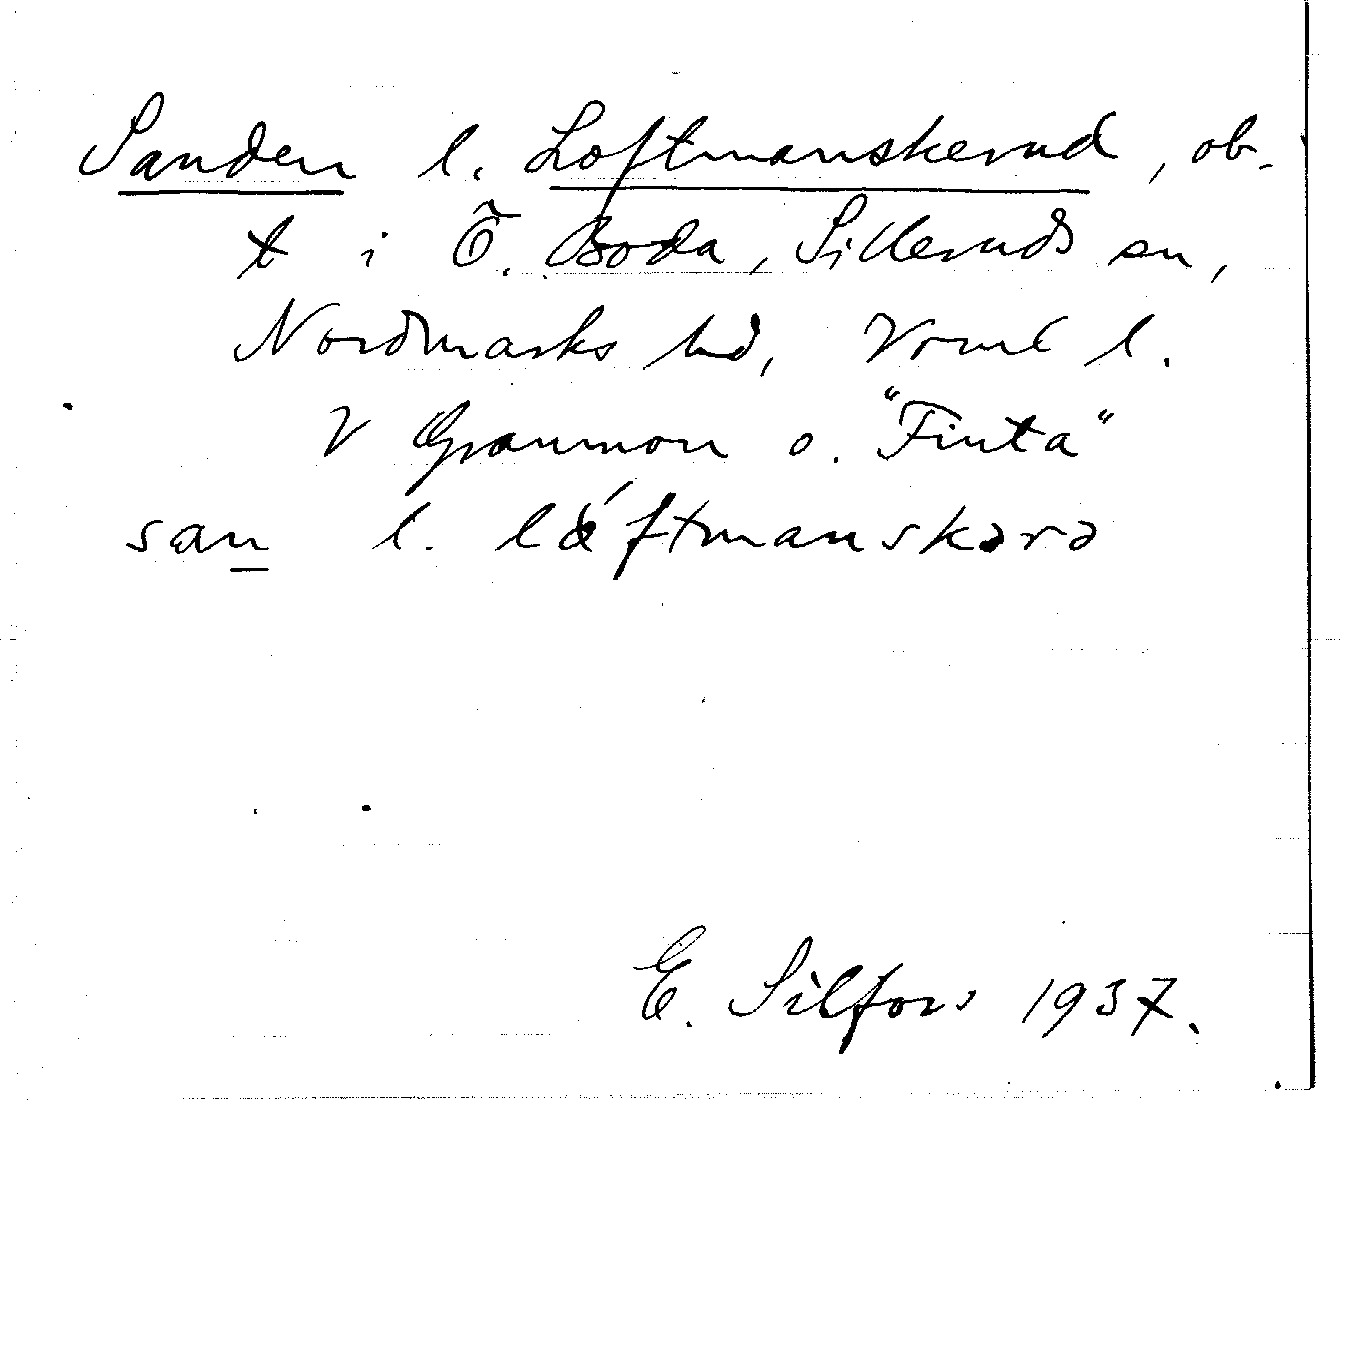 Sanden l. Loftmanskerud, ob-
t i Ö. Boda, Silleruds sn,
Nordmarks hd, Vrml l.
V Grammon o. "Finta"
san l. lǿftmanskərə
E. Silfors 1937.